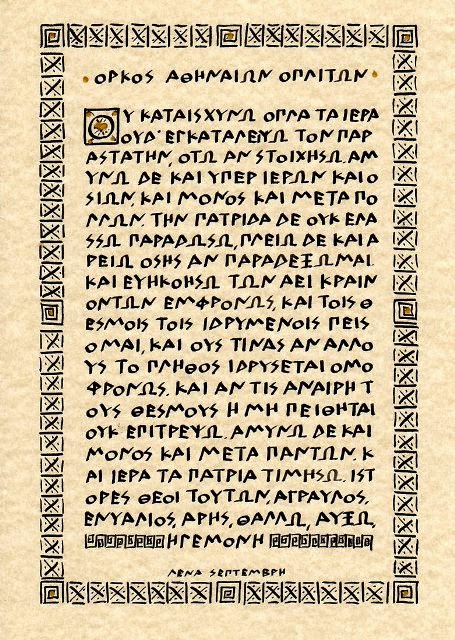 ΟΡΚΟΣ ΑΘΗΝΑΙΩΝ ΟΠΛΙΤΩΝ
ΟΥ ΚΑΤΑΙΣΧΥΝΩ ΟΠΛΑ ΤΑ ΙΕΡΑ
ΟΥΔ' ΕΓΚΑΤΑΛΕΙΨΩ ΤΟΝ ΠΑΡ
ΑΣΤΑΤΗΝ, ΟΤΩ ΑΝ ΣΤΟΙΧΗΣΩ. ΑΜ
ΥΝΩ ΔΕ ΚΑΙ ΥΠΕΡ ΙΕΡΩΝ ΚΑΙ Ο
ΣΙΩΝ, ΚΑΙ ΜΟΝΟΣ ΚΑΙ ΜΕΤΑ ΠΟ
ΛΛΩΝ. ΤΗΝ ΠΑΤΡΙΔΑ ΔΕ ΟΥΚ ΕΛΑ
ΣΣΩ ΠΑΡΑΔΩΣΩ, ΠΛΕΙΩ ΔΕ ΚΑΙ Α
ΡΕΙΩ ΟΣΗΣ ΑΝ ΠΑΡΑΔΕΞΩΜΑΙ.
ΚΑΙ ΕΥΗΚΟΗΣΩ ΤΩΝ ΑΕΙ ΚΡΑΙΝ
ΟΝΤΩΝ ΕΜΦΡΟΝΩΣ, ΚΑΙ ΤΟΙΣ Θ
ΕΣΜΟΙΣ ΤΟΙΣ ΙΔΡΥΜΕΝΟΙΣ ΠΕΙΣ
ΟΜΑΙ, ΚΑΙ ΟΥΣ ΤΙΝΑΣ ΑΝ ΑΛΛΟ
ΥΣ ΤΟ ΠΛΗΘΟΣ ΙΔΡΥΣΕΤΑΙ ΟΜΟ
ΦΡΟΝΩΣ. ΚΑΙ ΑΝ ΤΙΣ ΑΝΑΙΡΗ Τ
ΟΥΣ ΘΕΣΜΟΥΣ Η ΜΗ ΠΕΙΘΗΤΑΙ
ΟΥΚ ΕΠΙΤΡΕΨΩ. ΑΜΥΝΩ ΔΕ ΚΑΙ
ΜΟΝΟΣ ΚΑΙ ΜΕΤΑ ΠΑΝΤΩΝ. Κ
ΑΙ ΙΕΡΑ ΤΑ ΠΑΤΡΙΑ ΤΙΜΗΣΩ. ΙΣΤ
ΟΡΕΣ ΘΕΟΙ ΤΟΥΤΩΝ, ΑΓΡΑΥΛΟΣ,
ΕΝΥΑΛΙΟΣ, ΑΡΗΣ, ΘΑΛΛΩ, ΑΥΞΩ,
ΗΓΕΜΟΝΗ
ΛΕΝΑ ΣΕΠΤΕΜΒΡΗ